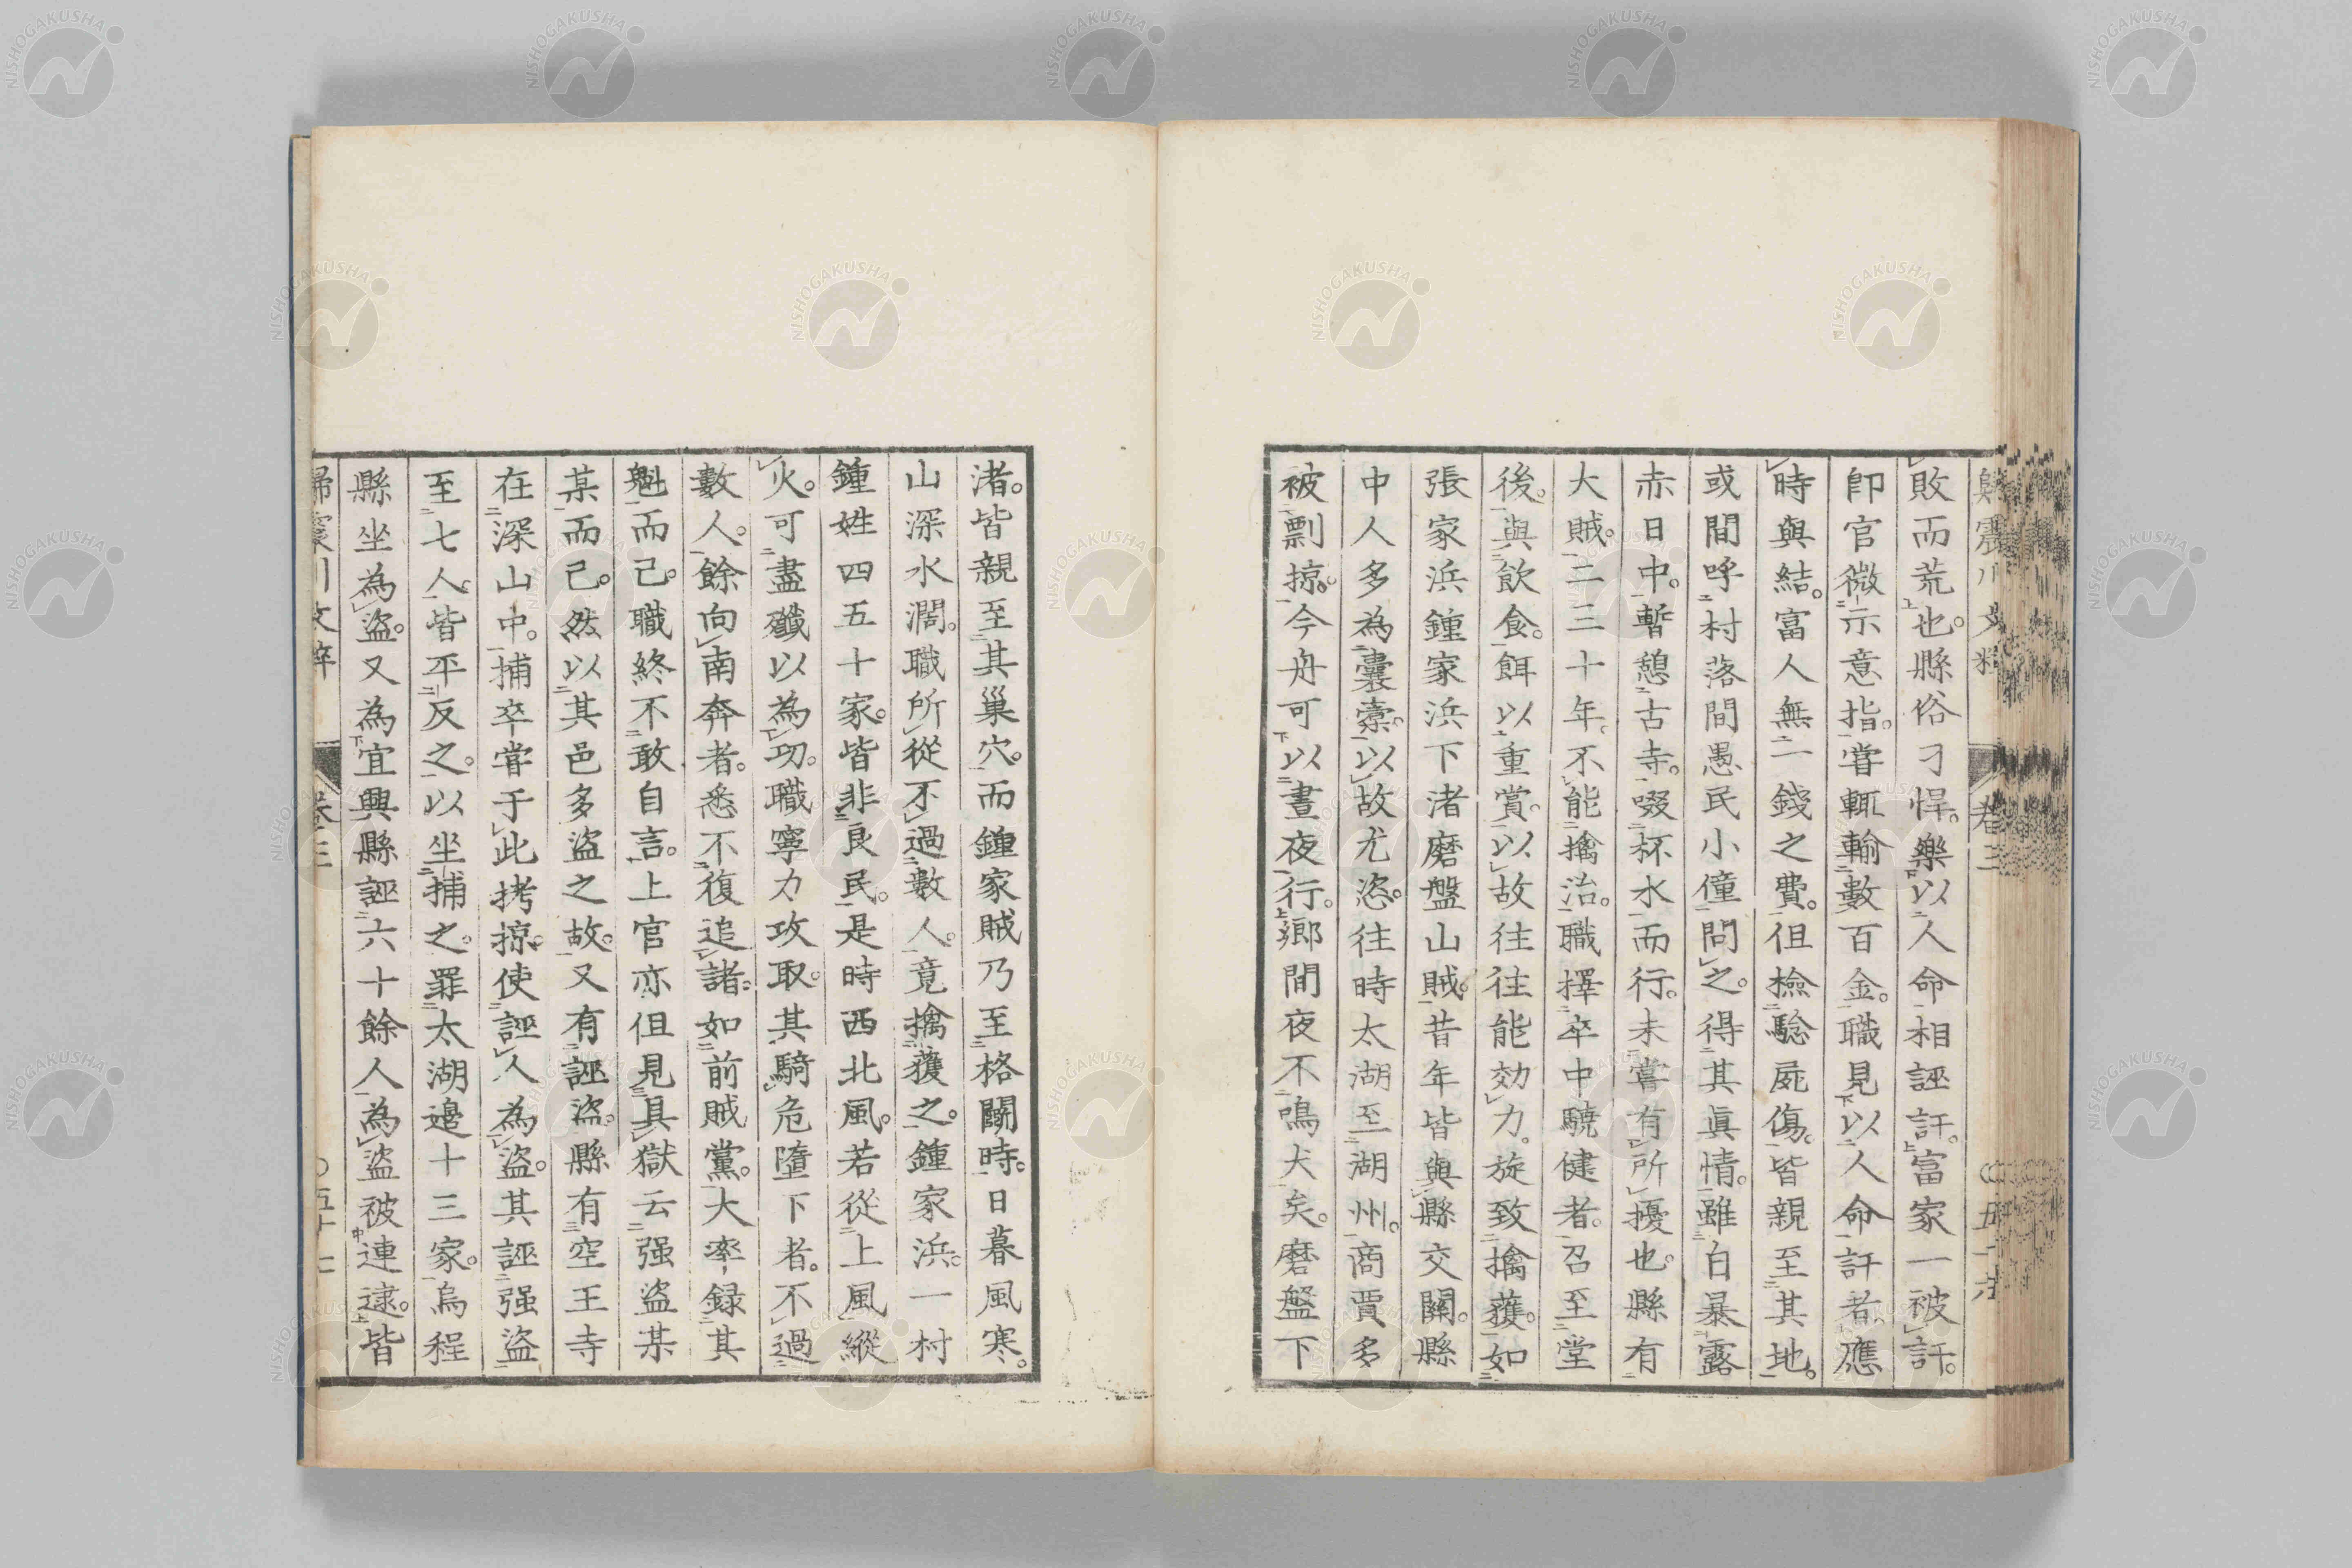 歸震川文粹 卷三 〇五十六
敗而荒也。縣俗刁悍。樂以人命相誣訐。富家一被訐。
卽官微示意指。嘗輒輸數百金。職見以人命訐者。應
時與結。富人無一錢之費。但檢驗屍傷。皆親至其地。
或間呼村落間愚民小僮問之。得其眞情。雖白暴露
赤日中。暫憩古寺。啜杯水而行。未嘗有所擾也。縣有
大賊。二三十年。不能擒治。職擇卒中驍健者。召至堂
後。與飲食。餌以重賞。以故往往能効力。旋致擒獲。如
張家浜鍾家浜下渚磨盤山賊。昔年皆與縣交關。縣
中人多為囊橐。以故尤恣。往時太湖至湖州。商賈多
被剽掠。今舟可以晝夜行。鄉間夜不鳴犬矣。磨盤下
渚。皆親至其巢穴。而鍾家賊乃至格鬭時。日暮風寒。
山深水濶。職所從不過數人。竟擒獲之。鍾家浜一村
鍾姓四五十家。皆非良民。是時西北風。若從上風縱
火。可盡殲以為功。職寧力攻取。其騎危墮下者。不過
數人。餘向南奔者。悉不復追諸。如前賊黨。大率錄其
魁而已。職終不敢自言。上官亦但見具獄云强盜某
某而已。然以其邑多盜之故。又有誣盜。縣有空王寺
在深山中。捕卒嘗于此拷掠。使誣人為盜。其誣强盜
至七人。皆平反之。以坐捕之罪。太湖邊十三家。烏程
縣坐為盜。又為宜興縣誣六十餘人為盜被連逮。皆
歸震川文粹 卷三 〇五十七